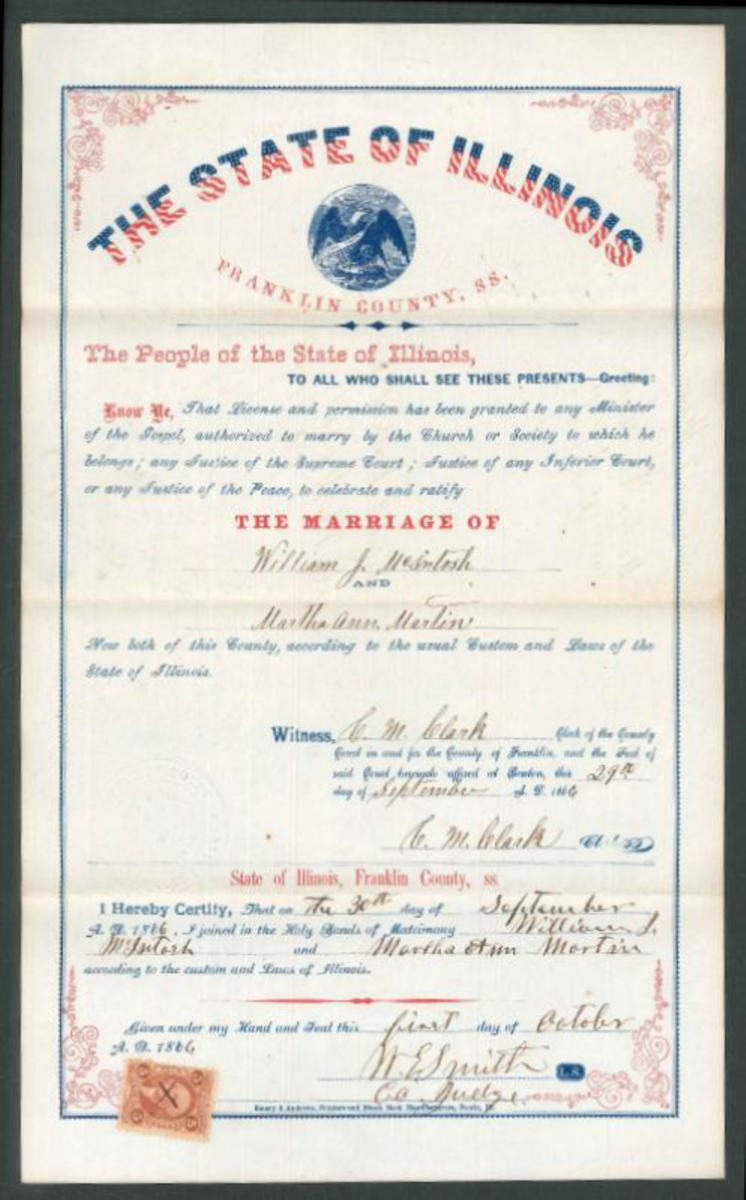 THE STATE OF ILLINOIS
FRANKLIN COUNTY, SS.
The People of the State of Illinois,
TO ALL WHO SHALL SEE THESE PRESENTS—Greeting:
Know Ye, That License and permission has been granted to any Minister
of the Gospel, authorized to marry by the Church or Society to which he
belongs; any Justice of the Supreme Court; Justice of any Inferior Court,
or any Justice of the Peace, to celebrate and ratify
THE MARRIAGE OF
William J. McIntosh
AND
Martha Ann Martin
Now both of this County, according to the usual Custom and Laws of the
State of Illinois.
Witness, C. M. Clark Clerk of the County
Court in and for the County of Franklin, and the Seal of
said Court, hereunto affixed at Benton, this 29th
day of September A. D. 1866
C. M. Clark Clerk
State of Illinois, Franklin County, ss.
I Hereby Certify, That on the 30th day of September
A. D. 1866, I joined in the Holy Bands of Matrimony William J.
McIntosh and Martha Ann Martin
according to the custom and Laws of Illinois.
Given under my Hand and Seal this first day of October
A. D. 1866
W. E. Smith L. S.
Co Judge